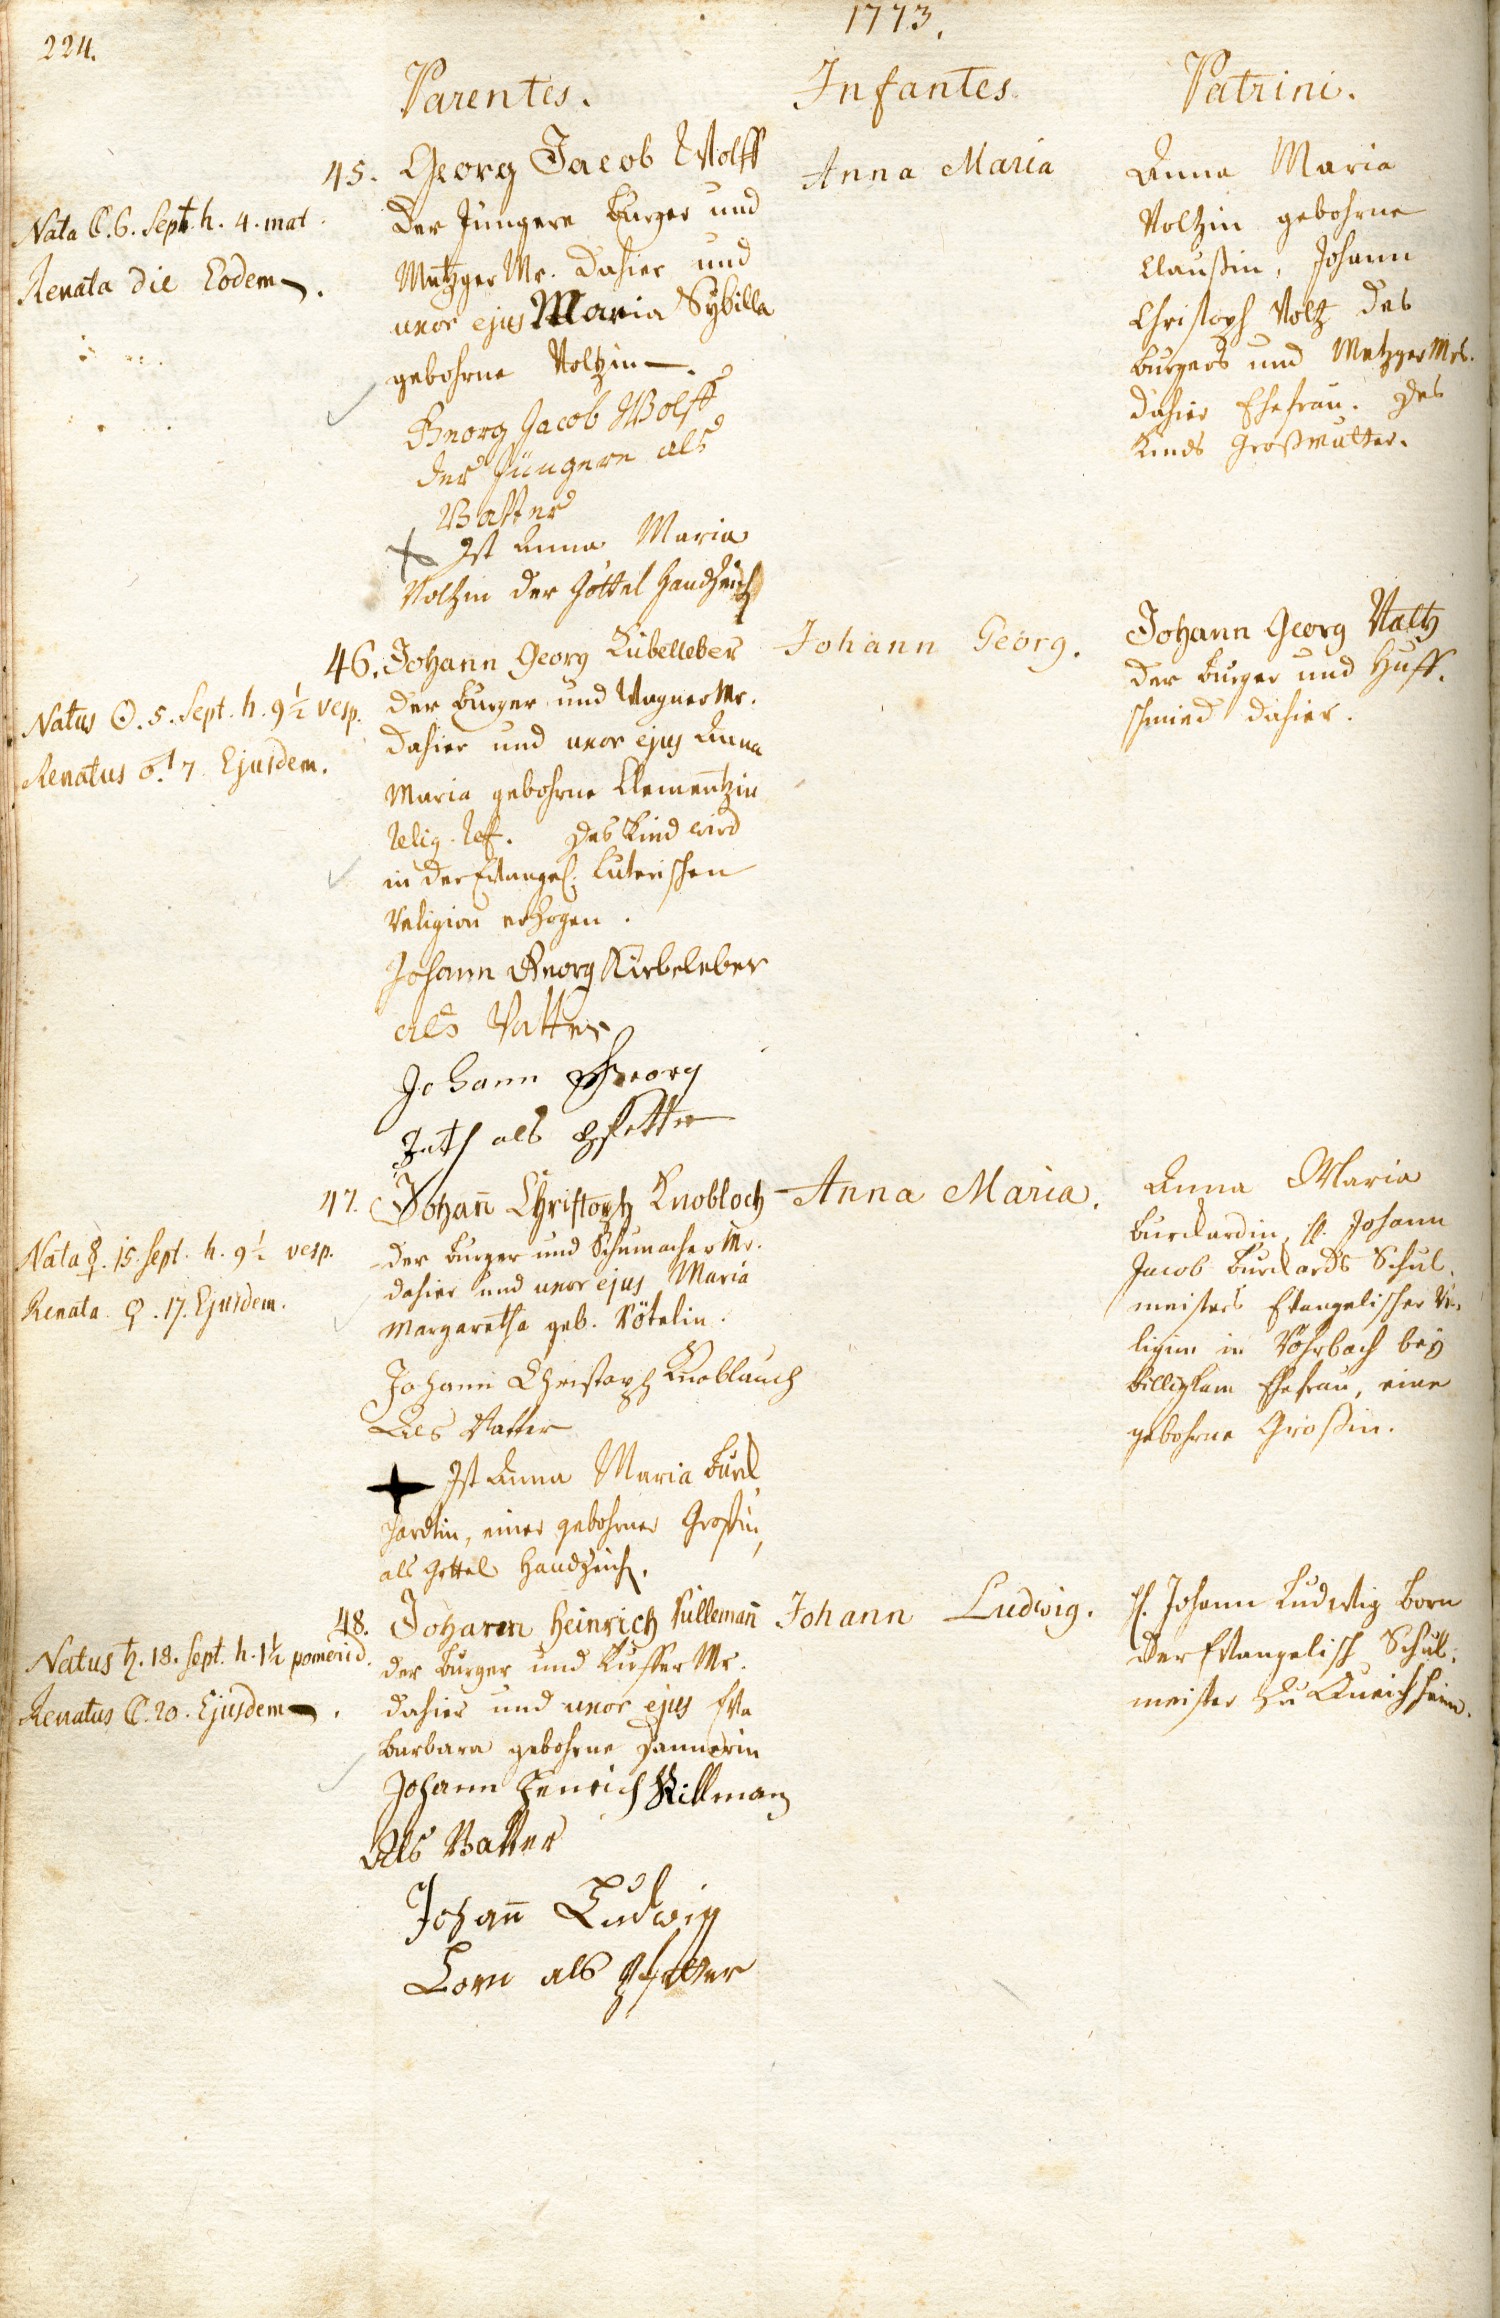 224.
1773.
Parentes.
Infantes.
Patrini.
Nata ☾. 6. Sept. h. 4. mat.
Renata die Eodem.
45. Georg Jacob Wolff
der Jüngere Burger und
Metzger Mr. dahier und
uxor ejus Maria Sybilla
gebohrne Voltzin.
Georg Jacob Wolff
der Jüngere als
Vatter
Ist Anna Maria
Voltzin der Göttel Handzeich
Anna Maria
Anna Maria
Voltzin gebohrne
Claußin, Johann
Christoph Voltz des
Burgers und Metzger Mrs.
dahier Ehefrau. des
Kinds Großmutter.
Natus ☉. 5. Sept. h. 9½ vesp.
Renatus ♂. 7. Ejusdem.
46. Johann Georg Kübelleber
der Burger und Wagner Mr.
dahier und uxor ejus Anna
Maria gebohrne Clementzin
relig. ref. Das Kind wird
in der Evangel. Luterischen
Religion erzogen.
Johann Georg
als Vatter
Johann Georg
als Pfetter
Johann Georg.
Johann Georg
der Burger und Huff-
schmied dahier.
Nata ☿. 15. Sept. h. 9½ vesp.
Renata ♀. 17. Ejusdem.
47. Johann Christoph Knobloch
der Burger und Schumacher Mr.
dahier und uxor ejus Maria
Margaretha geb. Vötelin.
Johann Christoph Knoblauch
Als Vatter
Ist Anna Maria Burck
hardtin, einer gebohrner Großin,
als Gettel Handzeich.
Anna Maria.
Anna Maria
Burckardin, H. Johann
Jacob Burckards Schul-
meisters Evangelischer Re-
ligion in Rohrbach bey
Billigheim Ehefrau, eine
gebohrne Großin.
Natus ♄. 18. Sept. h. 1½ pomerid.
Renatus ☾. 20. Ejusdem.
48. Johann Heinrich Füllemann
der Burger und Kuffer Mr.
dahier und uxor ejus Eva
Barbara gebohrne Dannerin
Johann Henrich
Als Vatter
Johann Ludwig
Born als Pfetter
Johann Ludwig.
H. Johann Ludwig Born
der Evangelisch Schul-
meister zu Queichheim.